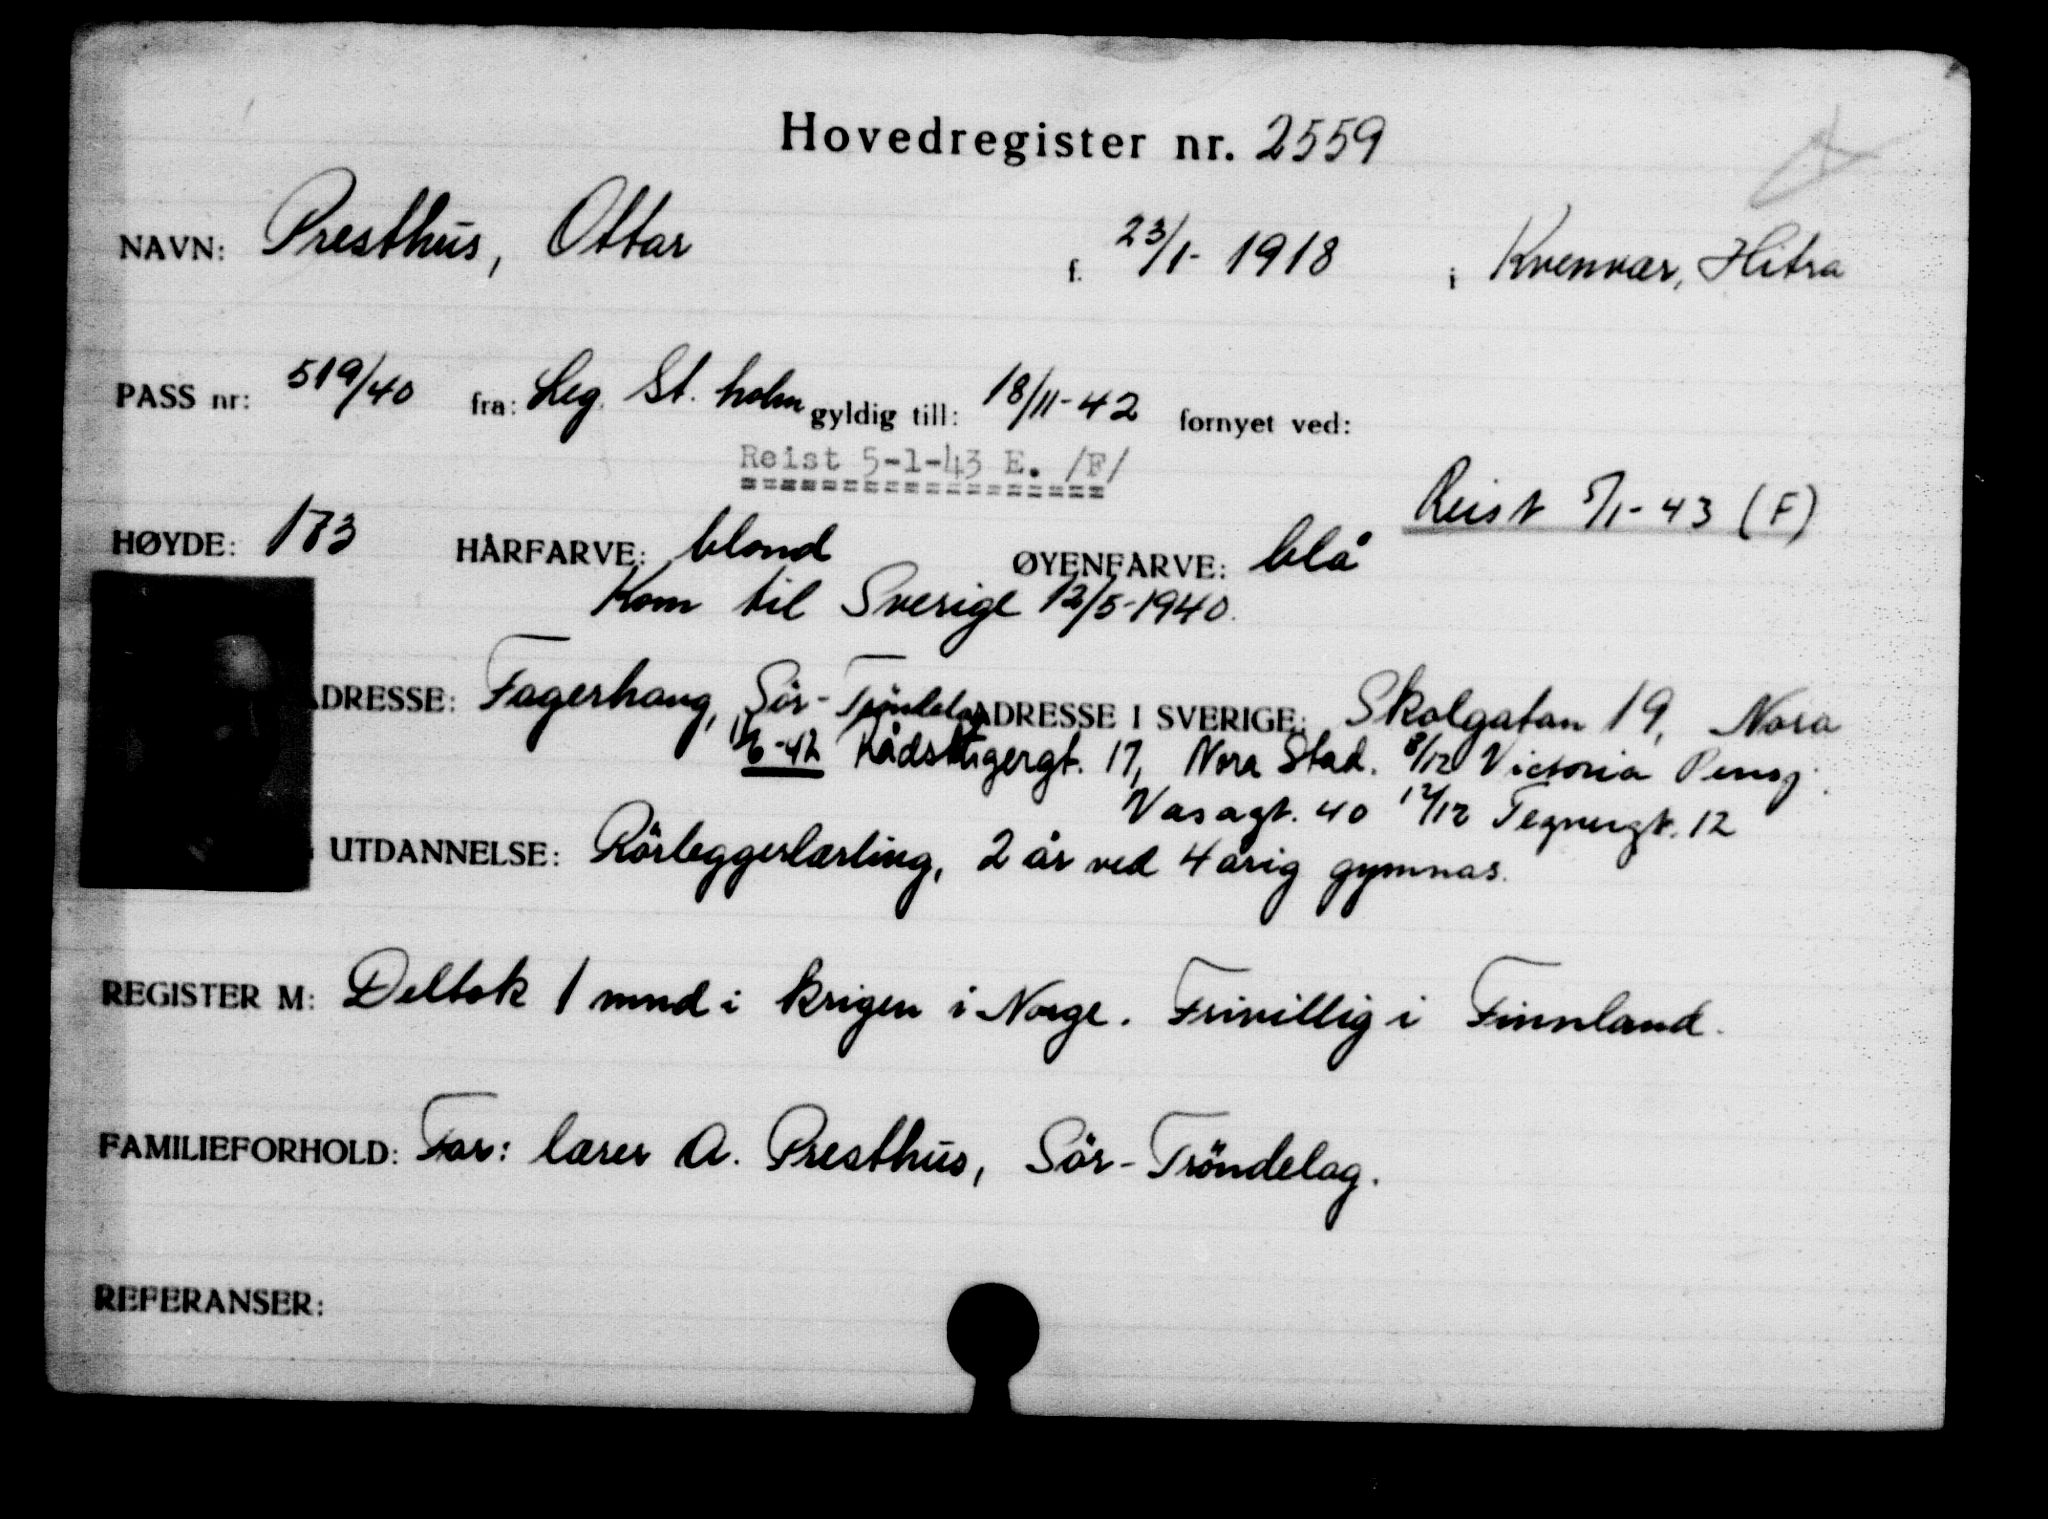 Hovedregister nr. 2559
NAVN: Presthus, Ottar f. 23/1- 1918 i Kvenvær, Hitra
PASS nr: 519/40 fra: Leg. St. holm gyldig till: 18/11-42 fornyet ved:
Reist 5-1-43 E. /F/
Reist 5/1-43 (F)
HØYDE: 173 HÅRFARVE: blond ØYENFARVE: blå
Kom til Sverige 12/5-1940.
ADRESSE: Fagerhaug, Sör-Tröndelag ADRESSE I SVERIGE: Skolgatan 19, Nora
1/6-42 Rådstugergt. 17, Nora Stad. 8/12 Victoria Pensj.
Vasagt. 40 12/12 Tegnergt. 12
UTDANNELSE: Rörleggerlærling, 2 år ved 4 årig gymnas.
REGISTER M: Deltok 1 mnd i krigen i Norge. Frivillig i Finnland.
FAMILIEFORHOLD: Far: lærer A. Presthus, Sör-Tröndelag.
REFERANSER: